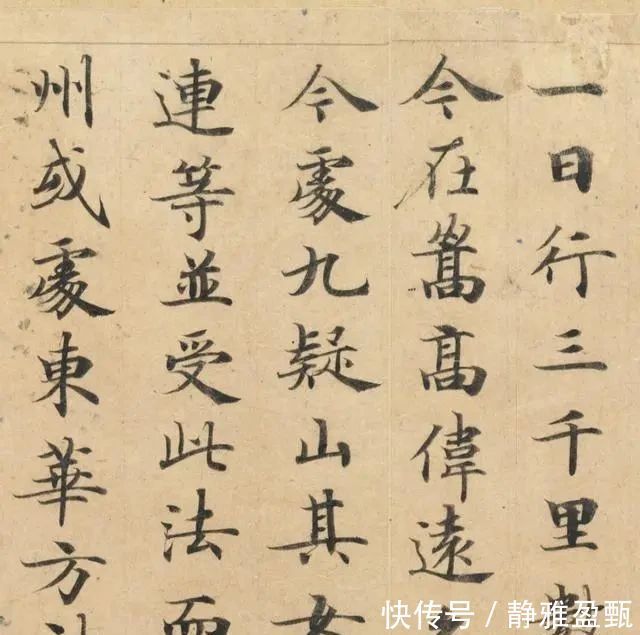 一日行三千里
今在嵩髙偉遠
今處九疑山其女
連等並受此法而
州或處東華方
快传号 / 静雅盈甄